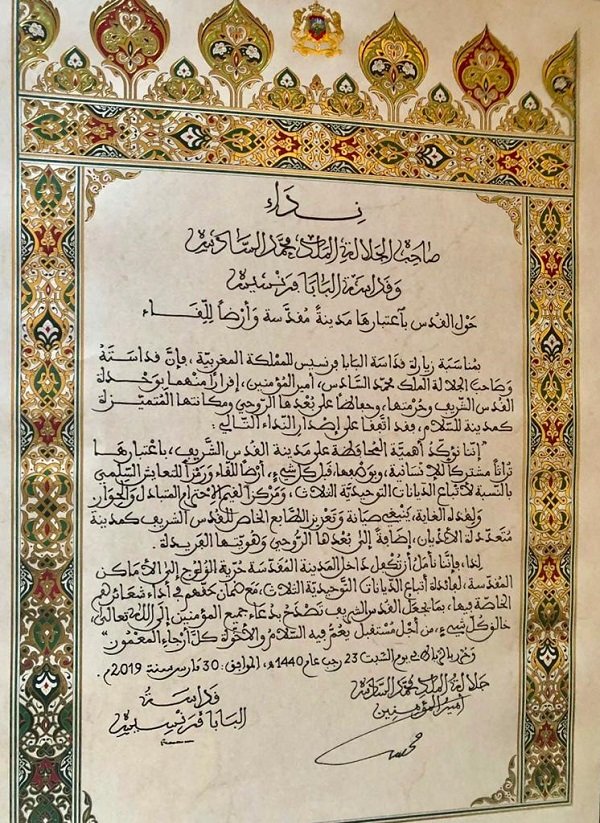 نداء
صاحب الجلالة الملك محمد السادس
وقداسة البابا فرنسيس
حول القدس باعتبارها مدينةً مقدّسة وأرضاً للقاء
بمناسبة زيارة قداسة البابا فرنسيس للمملكة المغربية، فإنّ قداستَهُ
وصاحب الجلالة الملك محمد السادس، أمير المؤمنين، إقراراً منهما بوحدة
القدس الشريف وحُرمتها، وحفاظاً على بُعدها الروحي ومكانتها المُتميّزة
كمدينة للسلام، فقد اتفقا على إصدار النداء التالي:
"إننا نؤكد أهمية المحافظة على مدينة القدس الشّريف، باعتبارها
تراثاً مشتركاً للإنسانية، وبوصفها، قبل كل شيء، أرضاً للقاء ورمزاً للتعايش السلمي
بالنسبة لأتباع الديانات التوحيدية الثلاث، ومركزاً لقيم الاحترام المتبادل والحوار
ولهذه الغاية، ينبغي صيانة وتعزيز الطابع الخاص للقدس الشريف كمدينة
متعددة الأديان، إضافةً إلى بُعدها الرُّوحي وهويتها الفريدة
لذا، فإننا نأمل أن تُكفل داخل المدينة المقدّسة حرّية الولوج إلى الأماكن
المقدسة، لفائدة أتباع الديانات التّوحيدية الثلاث، مع ضمان حقهم في أداء شعائرهم
الخاصّة فيها، بما يجعل القدس الشريف تصدح بدعاء جميع المؤمنين إلى الله تعالى،
خالق كل شيء، من أجل مستقبل يعُمُّ فيه السلام والأخوّة كلّ أرجاء المعمور"
وحُرر بالرباط في يوم السّبت 23 رجب عام 1440هـ، الموافق لـ: 30 مارس سنة 2019م.
جلالة الملك محمد السادس
أمير المؤمنين
قداسة
البابا فرنسيس